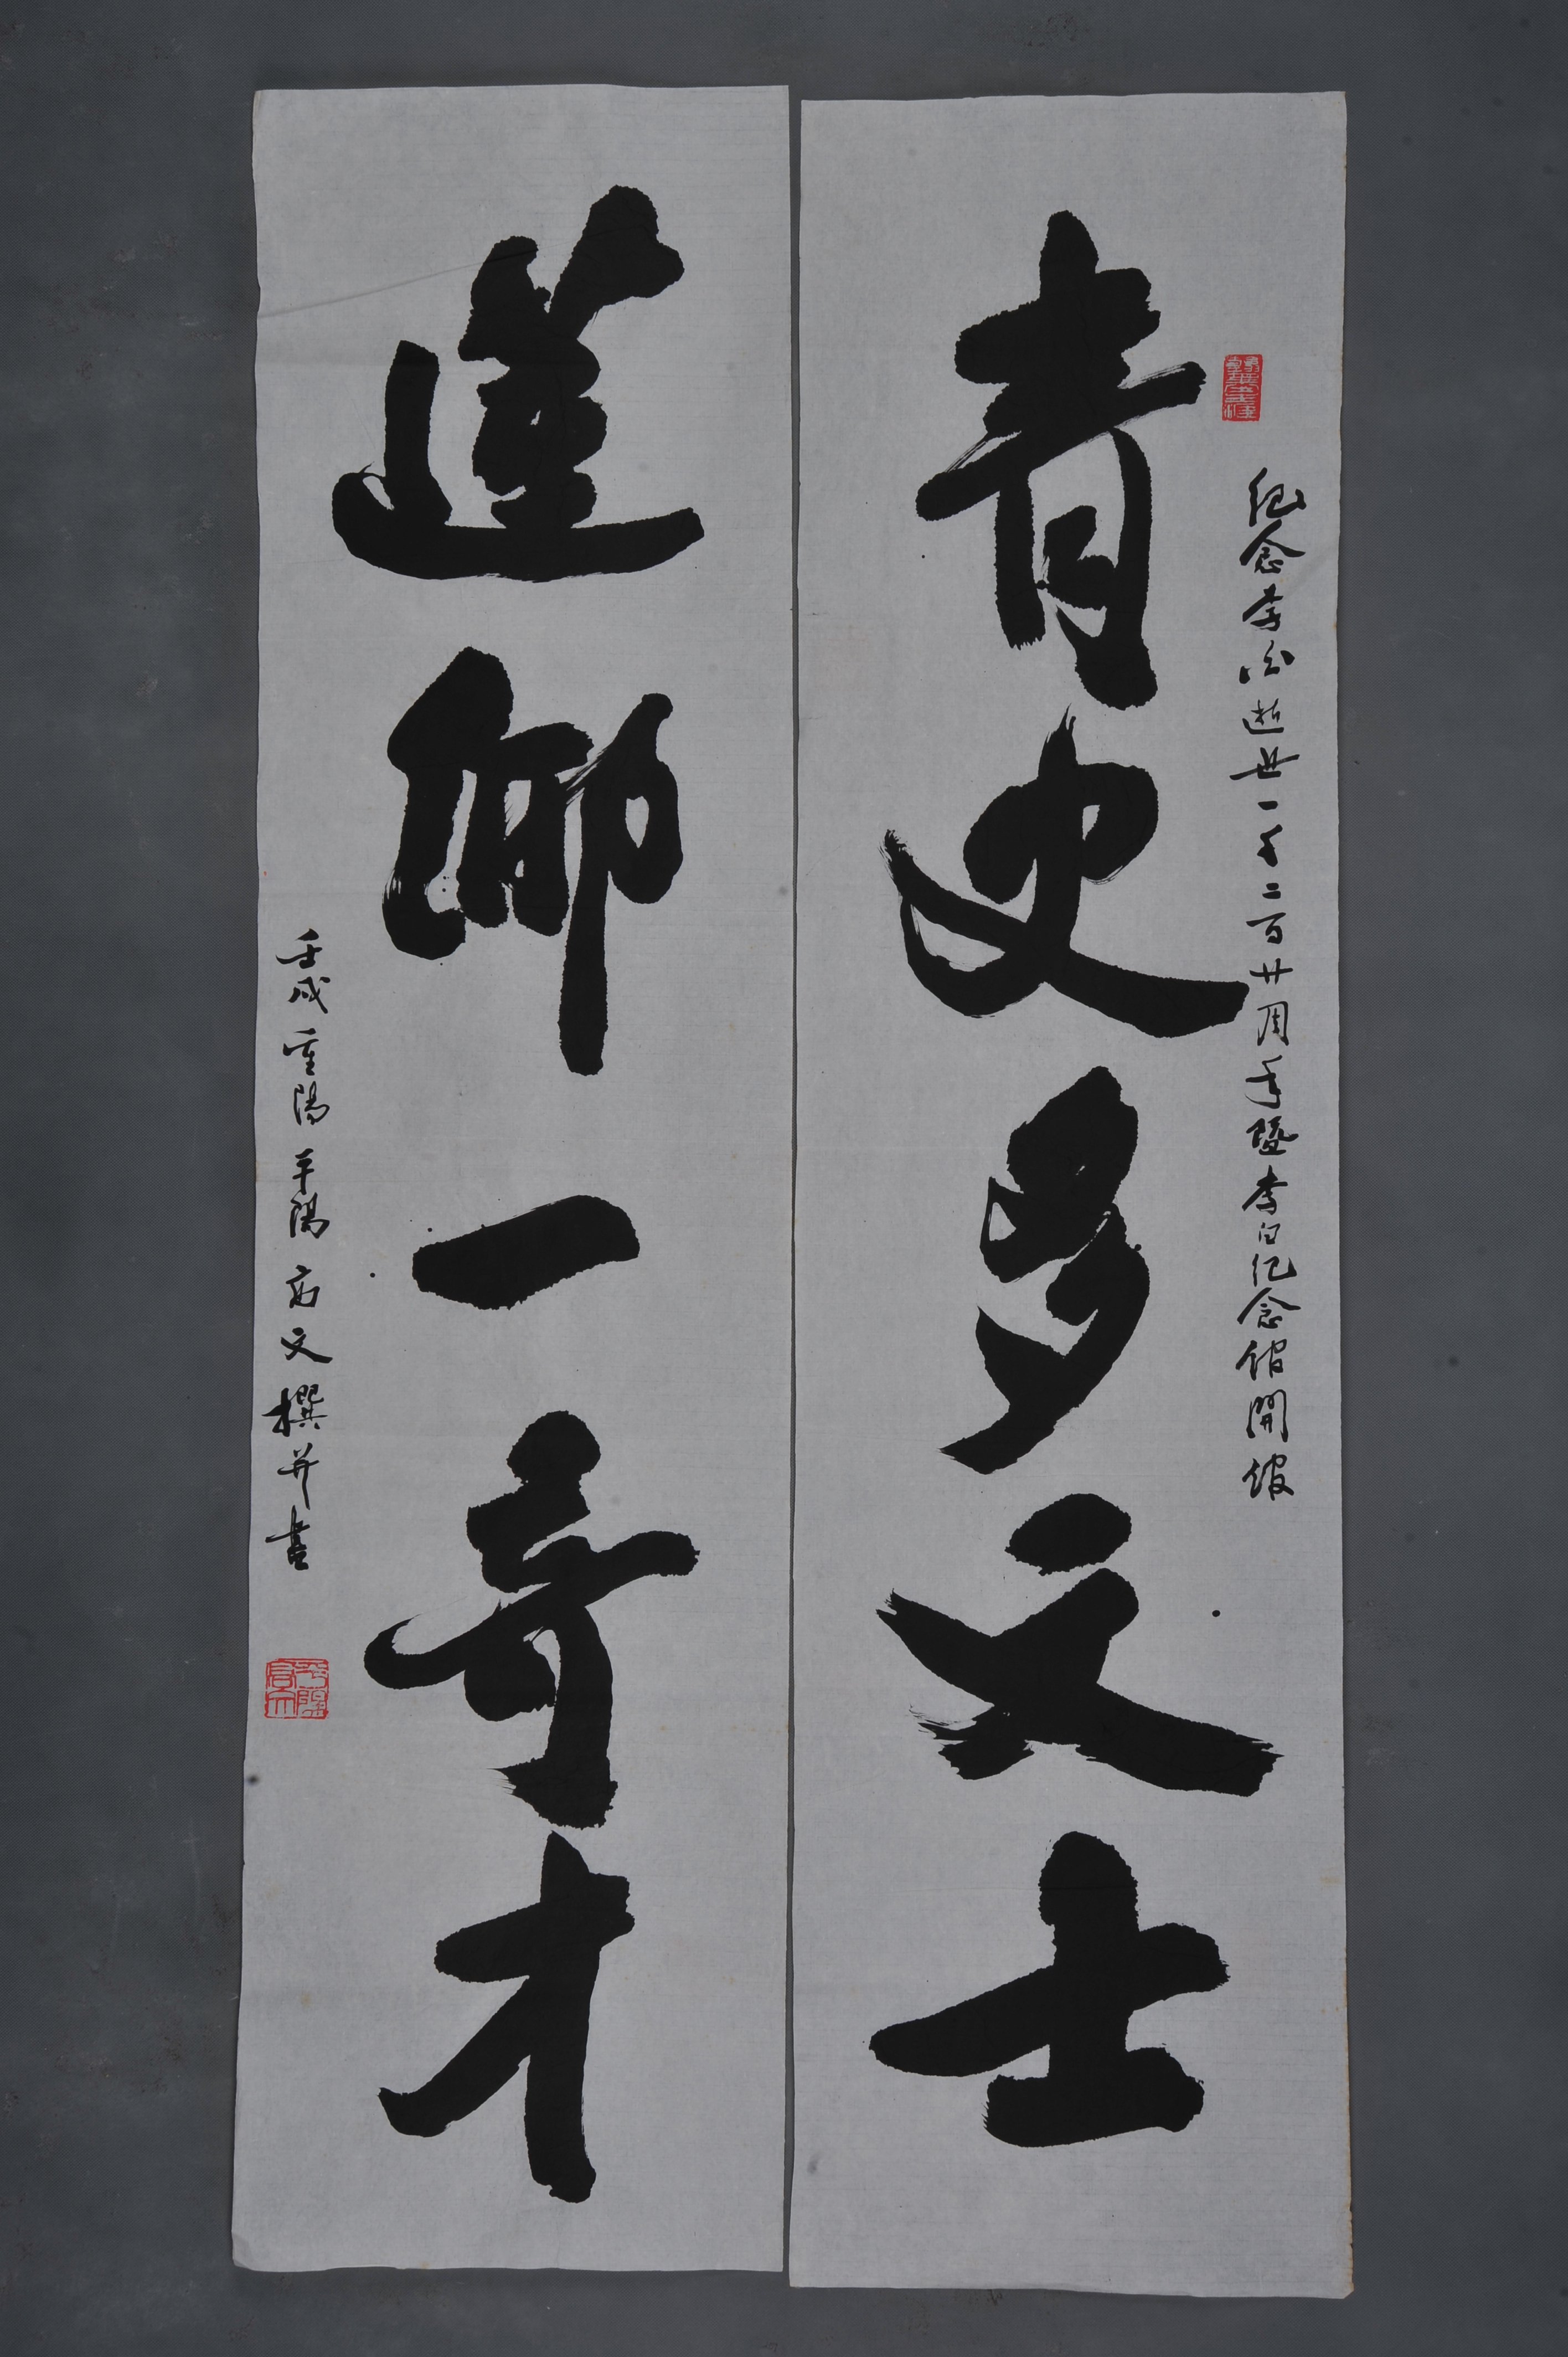 青史多文士
紀念李白逝世一千二百廿周年暨李白紀念館開館
蓮鄉一奇才
壬戌重陽平陽高文撰并書